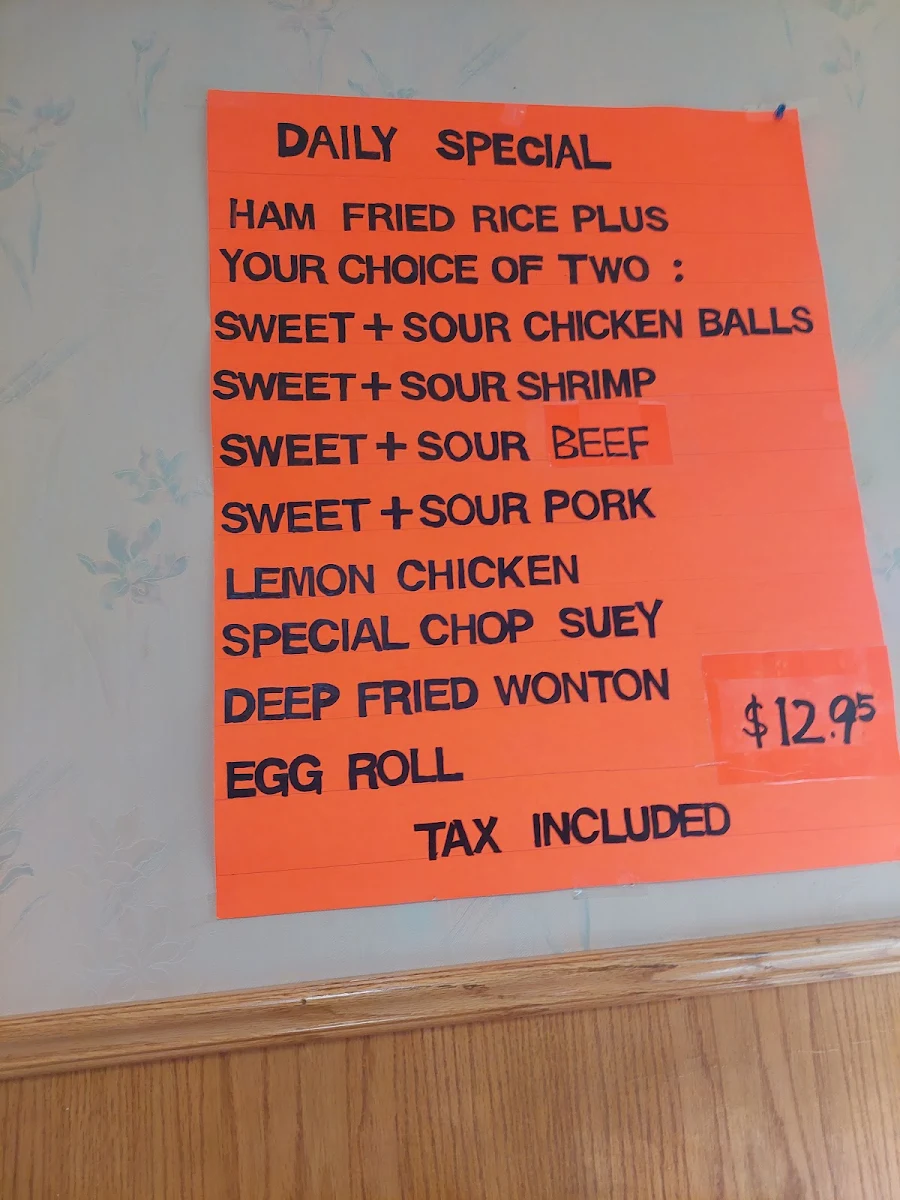 DAILY SPECIAL
HAM FRIED RICE PLUS
YOUR CHOICE OF TWO :
SWEET + SOUR CHICKEN BALLS
SWEET + SOUR SHRIMP
SWEET + SOUR BEEF
SWEET + SOUR PORK
LEMON CHICKEN
SPECIAL CHOP SUEY
DEEP FRIED WONTON
$12.95
EGG ROLL
TAX INCLUDED